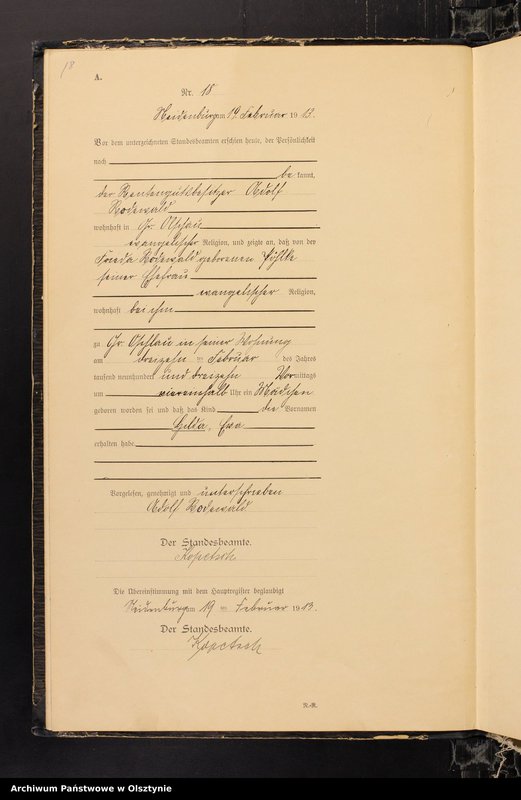 18
A.
Nr. 18
Neidenburg am 19 Februar 1913.
Vor dem unterzeichneten Standesbeamten erschien heute, der Persönlichkeit
nach
be kannt,
der Rentengutsbesitzer Adolf
Rodewald
wohnhaft in Gr. Olschau
evangelischer Religion, und zeigte an, daß von der
Frieda Rodewald geborenen
seiner Ehefrau
evangelischer Religion,
wohnhaft bei ihm
zu Gr. Olschau in seiner Wohnung
am dreizehn ten Februar des Jahres
tausend neunhundert und dreizehn Vormittags
um Uhr ein Mädchen
geboren worden sei und daß das Kind die Vornamen
Hilda, Eva
erhalten habe
Vorgelesen, genehmigt und unterschrieben
Adolf Rodewald
Der Standesbeamte.
Kopetsch
Die Übereinstimmung mit dem Hauptregister beglaubigt
Neidenburg am 19 ten Februar 1913.
Der Standesbeamte.
Kopetsch
Archiwum Państwowe w Olsztynie